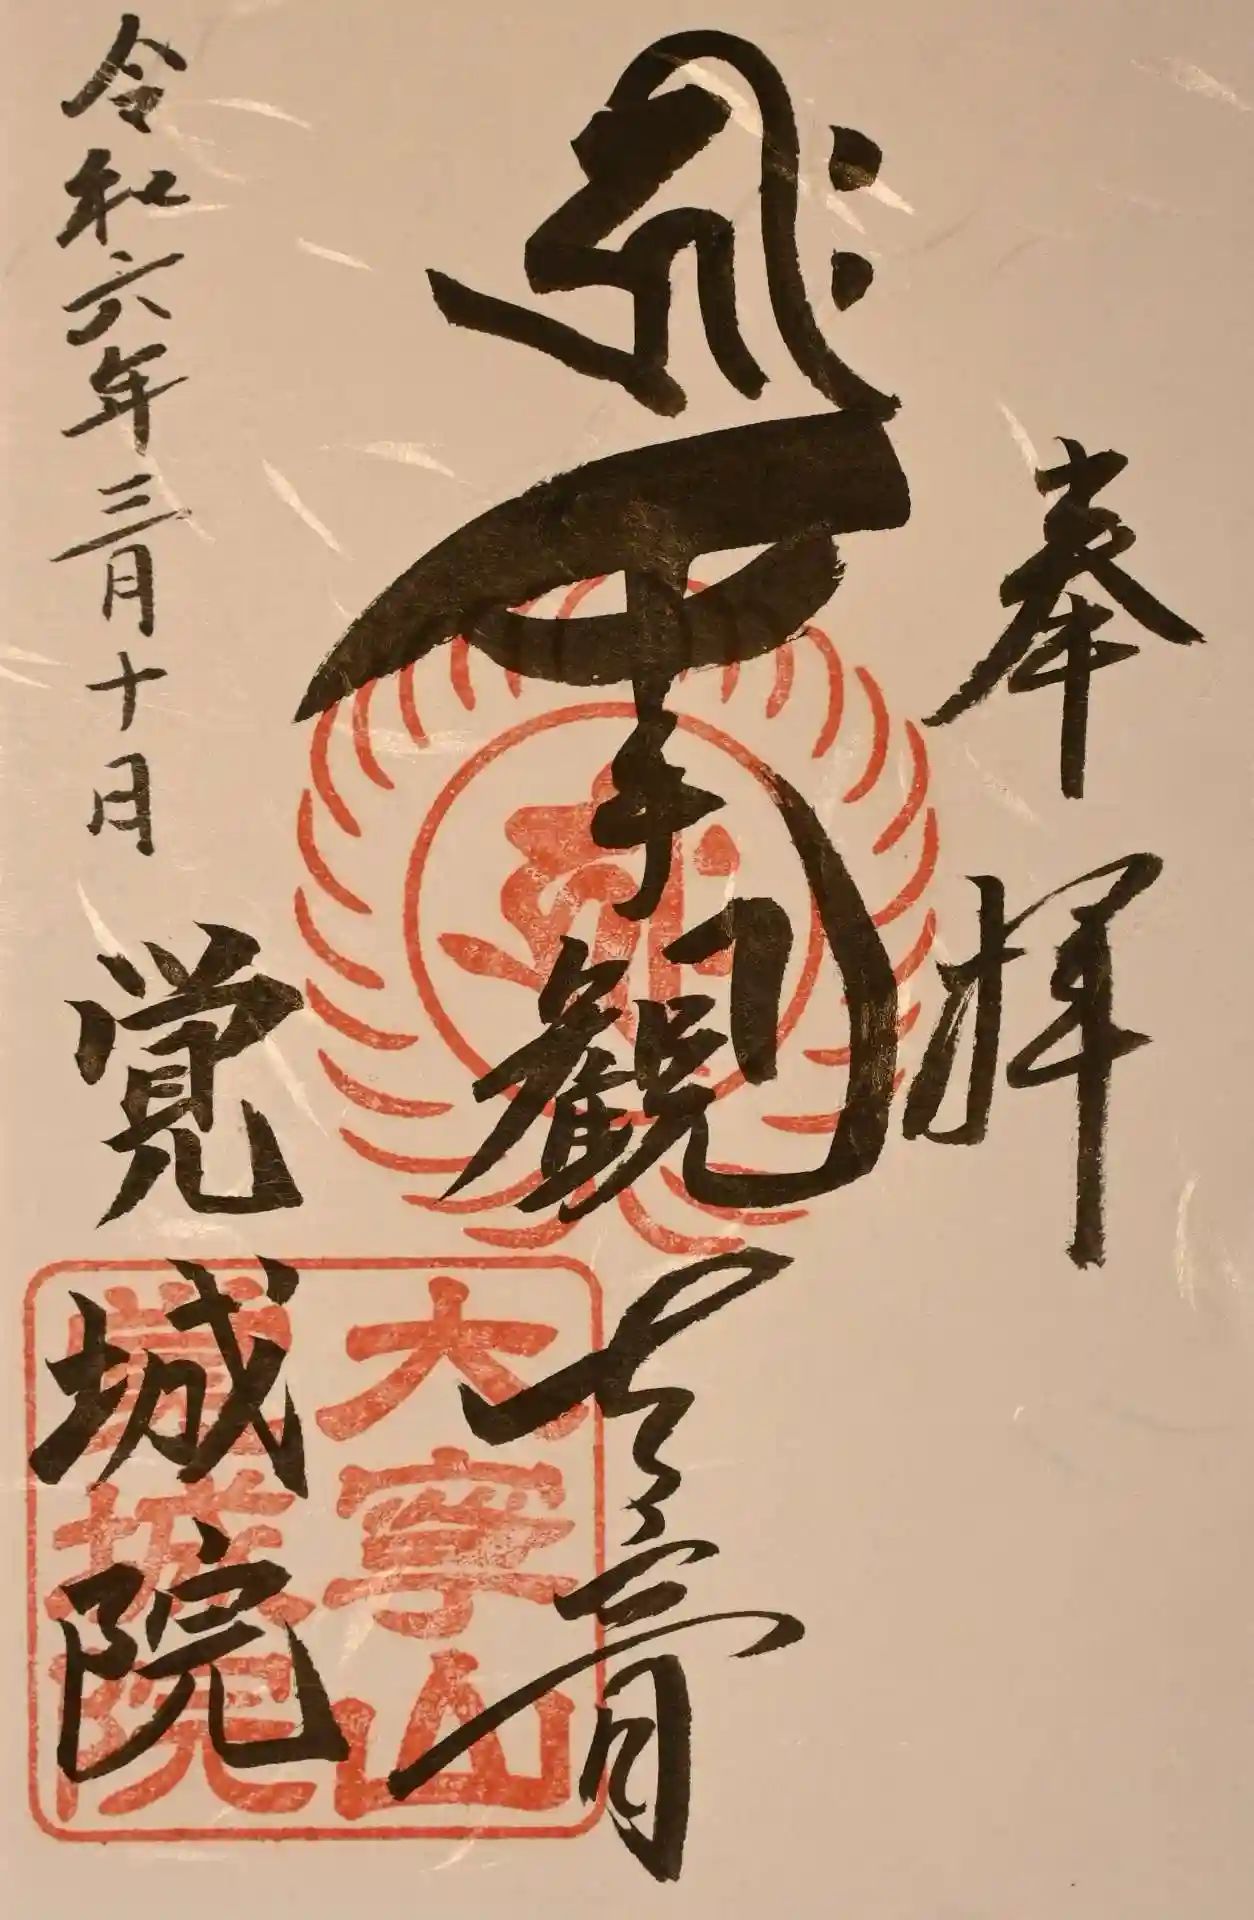 奉拝
𑖮𑖿𑖨𑖱𑖾
千手観世音
令和六年三月十日
覚城院
大寧山
覺城院